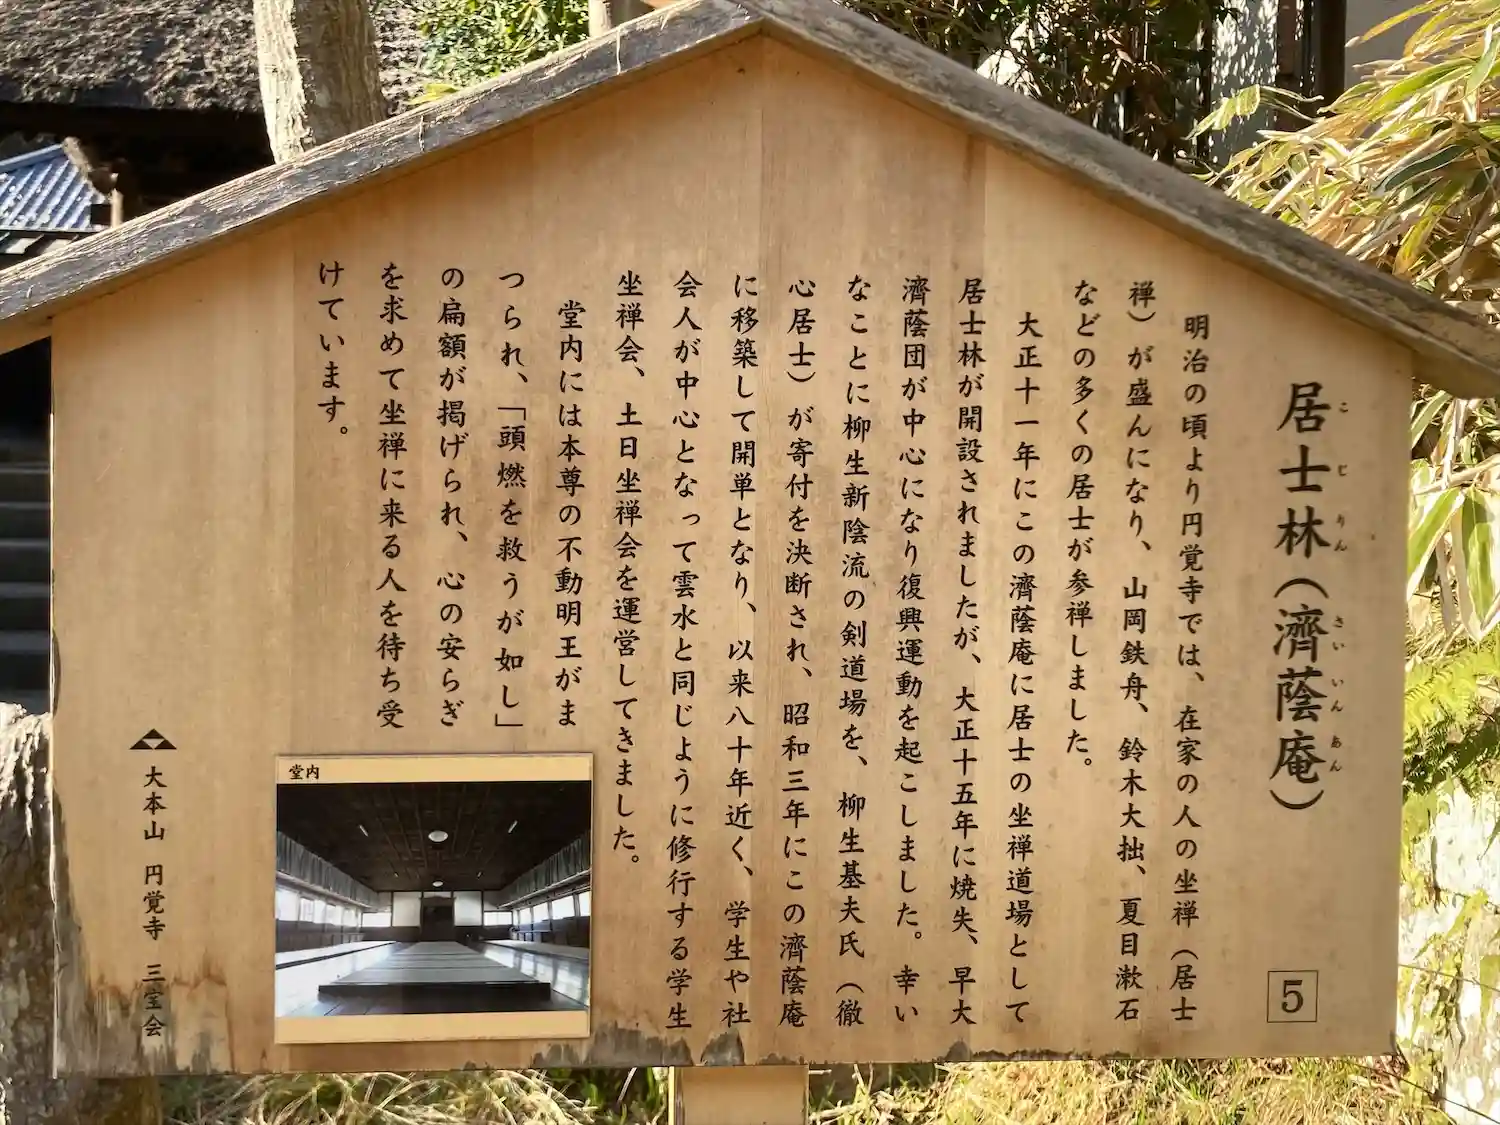 居士林(濟蔭庵)
こじりん さいいんあん
5
明治の頃より円覚寺では、在家の人の坐禅(居士
禅)が盛んになり、山岡鉄舟、鈴木大拙、夏目漱石
などの多くの居士が参禅しました。
大正十一年にこの濟蔭庵に居士の坐禅道場として
居士林が開設されましたが、大正十五年に焼失、早大
濟蔭団が中心になり復興運動を起こしました。幸い
なことに柳生新陰流の剣道場を、柳生基夫氏(徹
心居士)が寄付を決断され、昭和三年にこの濟蔭庵
に移築して開単となり、以来八十年近く、学生や社
会人が中心となって雲水と同じように修行する学生
坐禅会、土日坐禅会を運営してきました。
堂内には本尊の不動明王がま
つられ、「頭燃を救うが如し」
の扁額が掲げられ、心の安らぎ
を求めて坐禅に来る人を待ち受
けています。
堂内
大本山 円覚寺 三堂会